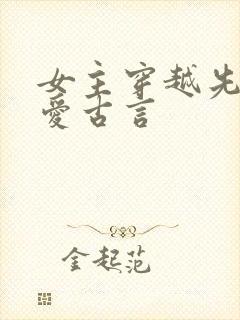 女主穿越先
爱古言
金起范